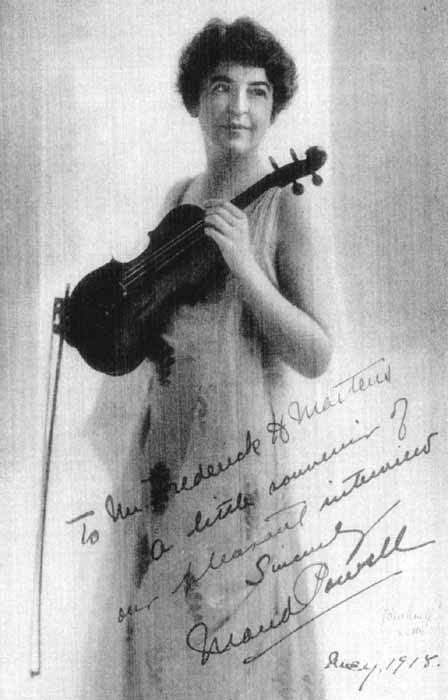 To Mr. Frederick H Martens
A little souvenir of
our pleasant interview
Sincerely
Maud Powell
1918.